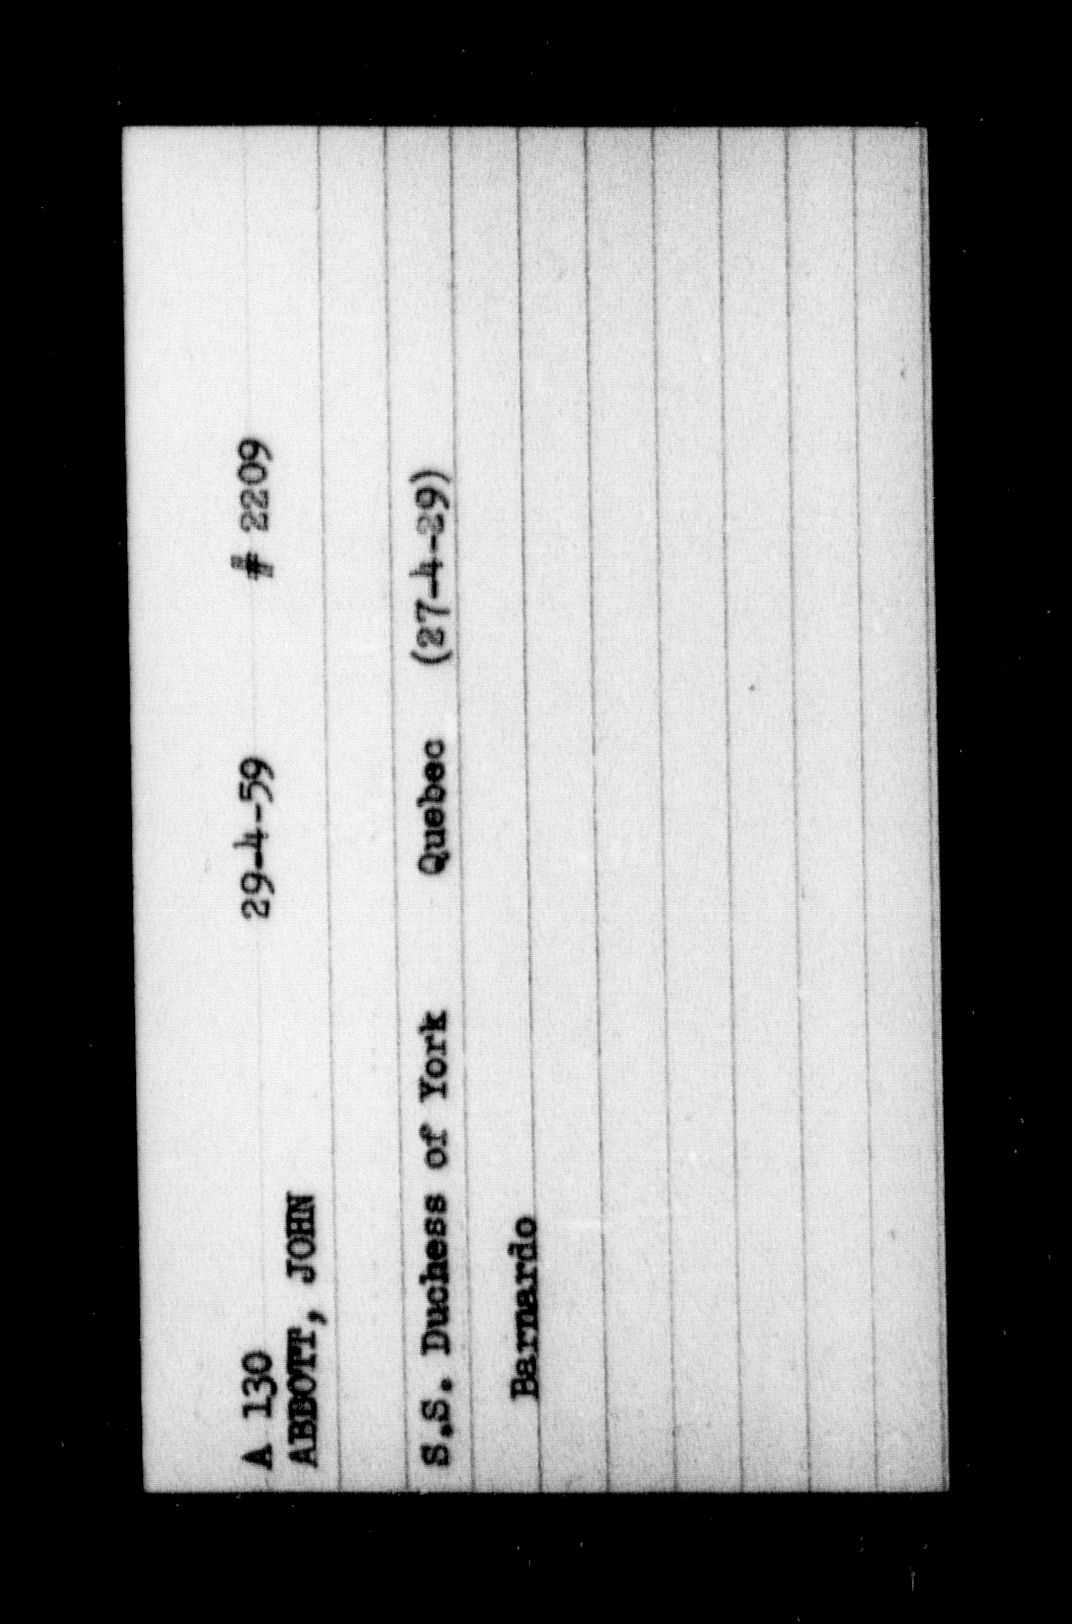 A 130 29-4-59 # 2209
ABBOTT, JOHN
S.S. Duchess of York Quebec (27-4-29)
Barnardo